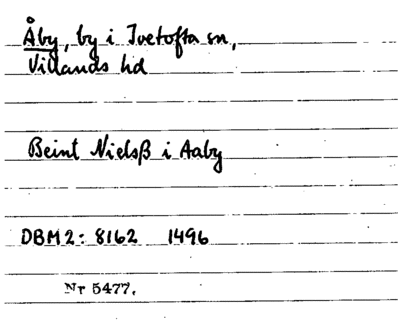 Åby, by i Ivetofta sn,
Villands hd
Beint Nielsß i Aaby
DBM2: 8162 1496
Nr 5477.